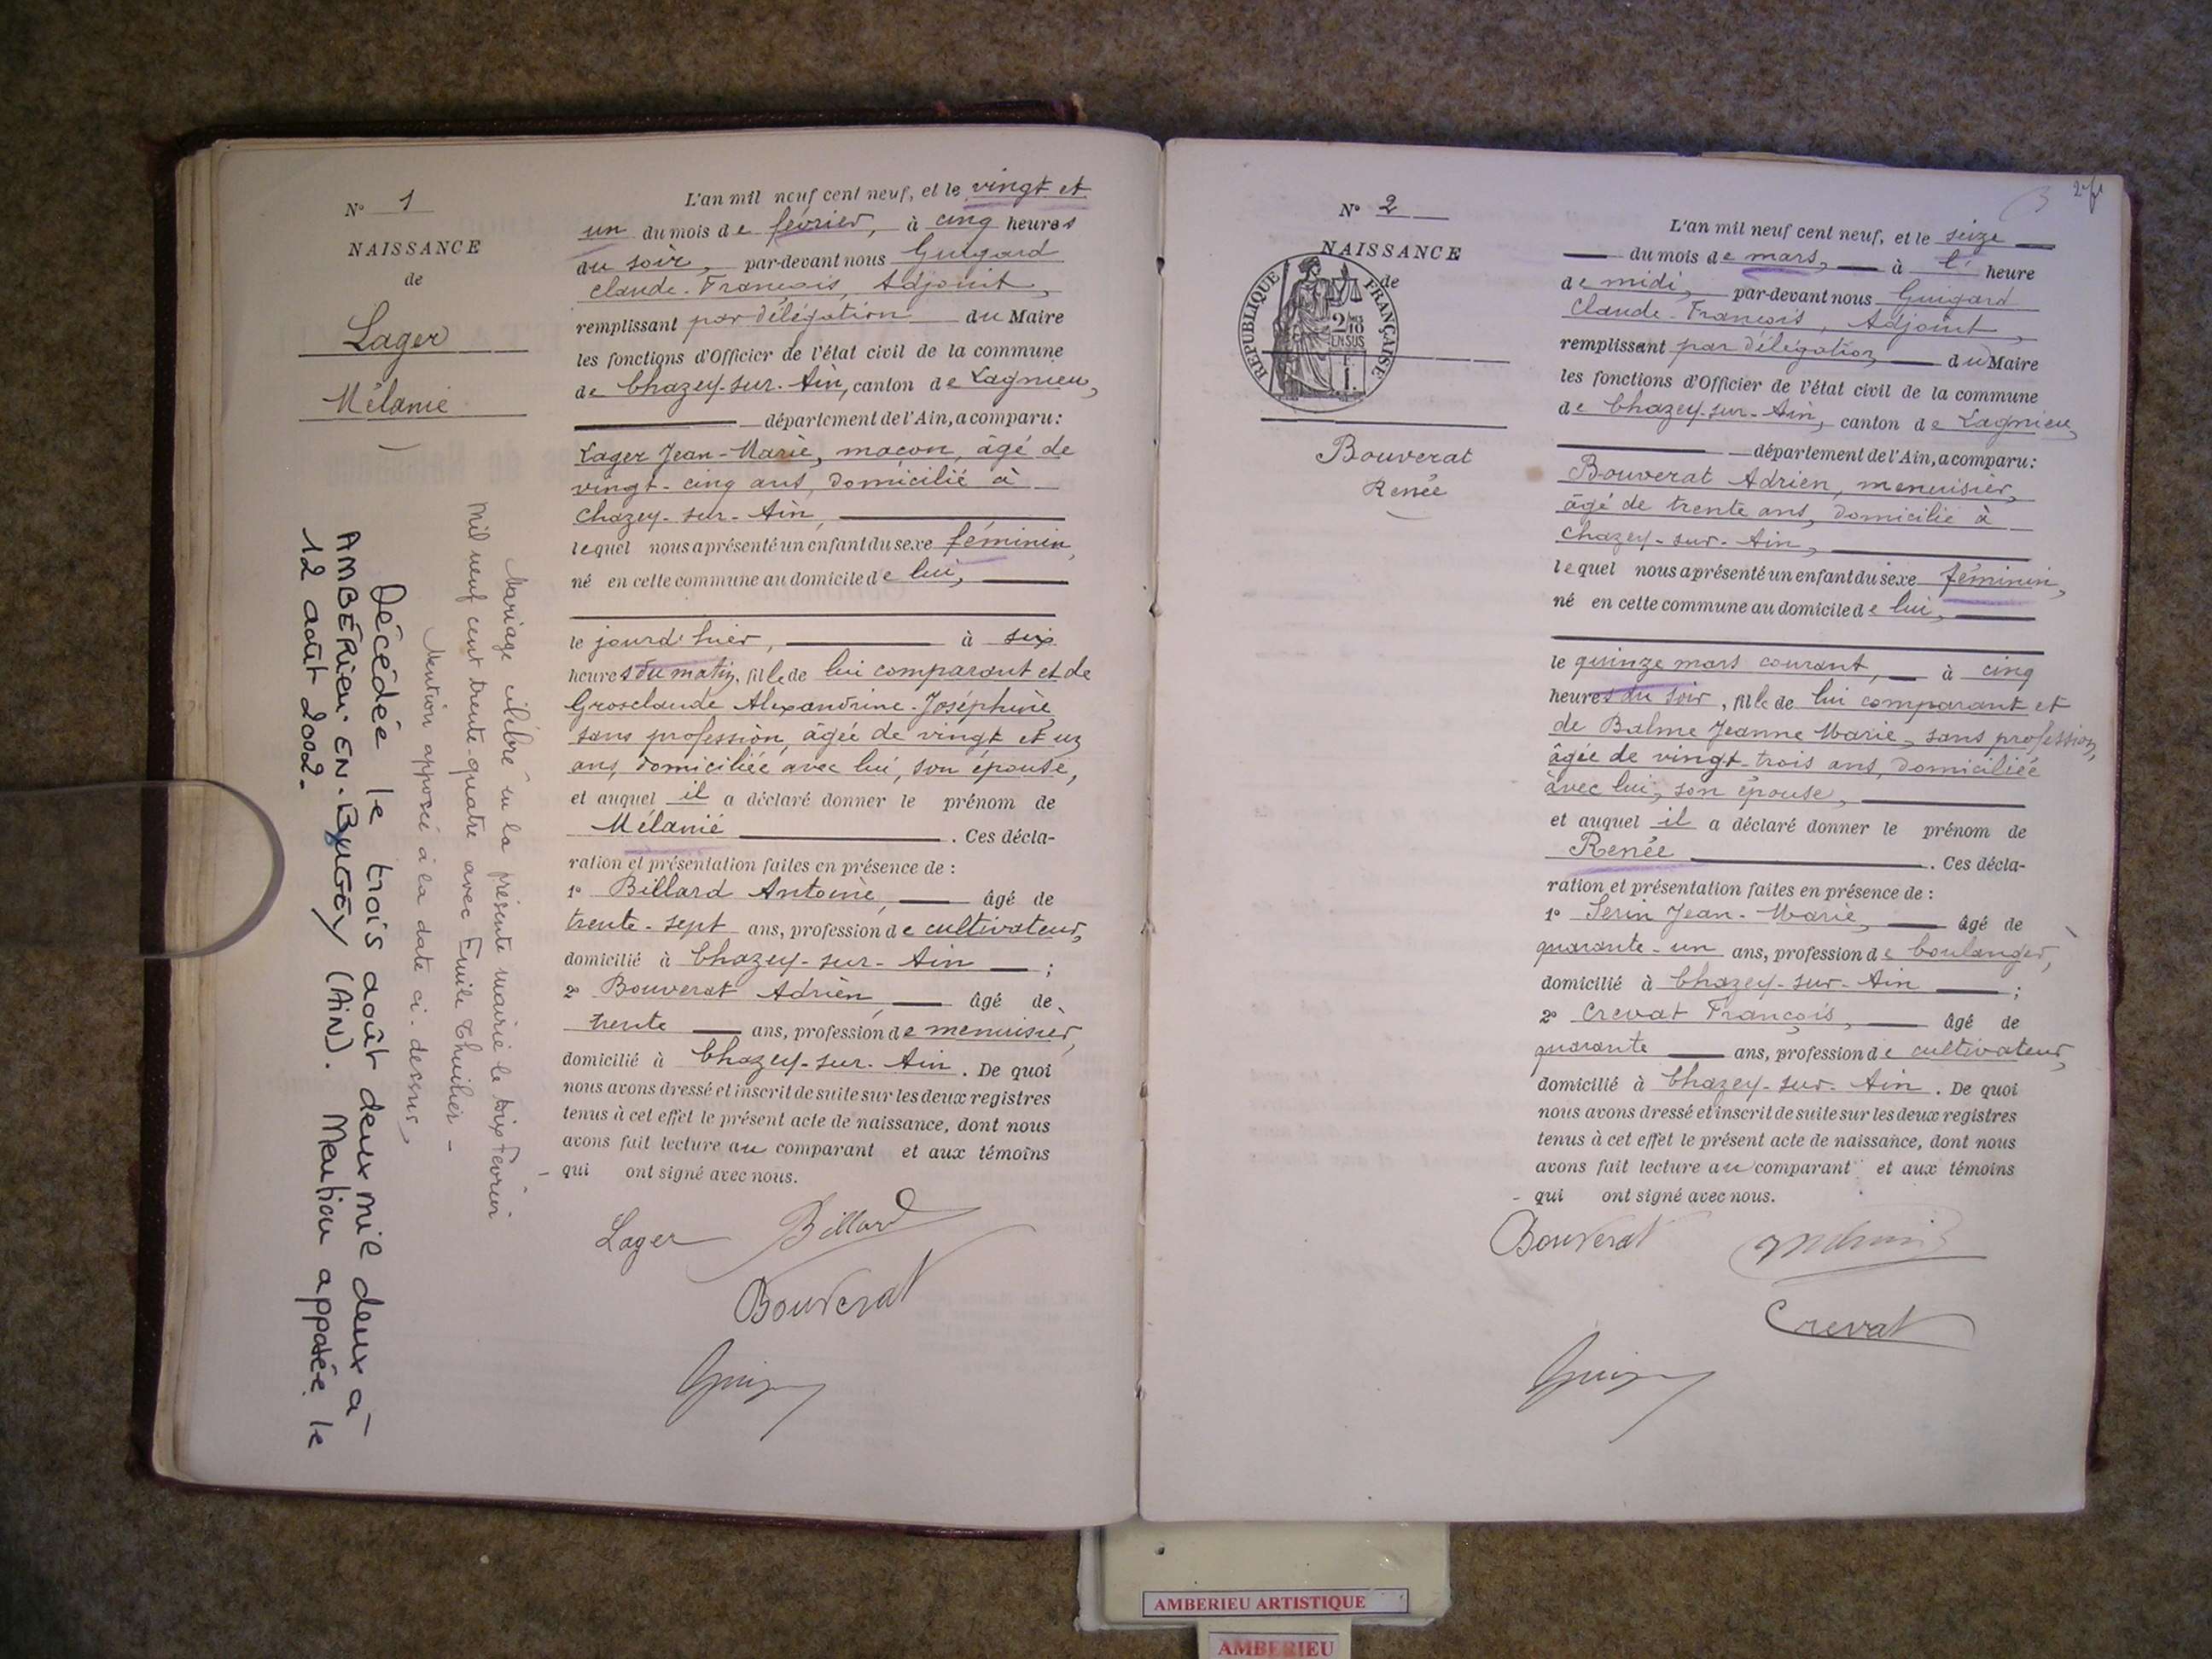 N° 1
NAISSANCE
de
Lager
Mélanie
L'an mil neuf cent neuf, et le vingt et
un du mois de février, à cinq heures
du soir, par-devant nous Guigard
Claude-François, Adjoint,
remplissant par délégation du Maire
les fonctions d'Officier de l'état civil de la commune
de Chazey-sur-Ain, canton de Lagnieu,
département de l'Ain, a comparu :
Lager Jean-Marie, maçon, âgé de
vingt-cinq ans, domicilié à
Chazey-sur-Ain,
lequel nous a présenté un enfant du sexe féminin,
né en cette commune au domicile de lui,
le jourd'hier, à six
heures du matin, fille de lui comparant et de
Grosclaude Alexandrine-Joséphine,
sans profession, âgée de vingt et un
ans, domiciliée avec lui, son épouse,
et auquel il a déclaré donner le prénom de
Mélanie. Ces décla-
ration et présentation faites en présence de :
1° Billard Antoine, âgé de
trente-sept ans, profession de cultivateur,
domicilié à Chazey-sur-Ain ;
2° Bouverat Adrien, âgé de
trente ans, profession de menuisier,
domicilié à Chazey-sur-Ain. De quoi
nous avons dressé et inscrit de suite sur les deux registres
tenus à cet effet le présent acte de naissance, dont nous
avons fait lecture au comparant et aux témoins
- qui ont signé avec nous.
Lager Billard
Bouverat
Mariage célébré en la présente mairie le six Fevrier
mil neuf cent trente-quatre avec Emile Thuilier -
Mention apposé à la date ci-dessus,
Décédée le trois août deux mil deux à
AMBÉRIEU-EN-BUGEY (AIN). Mention apposée le
12 août 2002.
N° 2
NAISSANCE
de
RÉPUBLIQUE FRANÇAISE
2/10
EN SUS
Bouverat
Renée
L'an mil neuf cent neuf, et le seize
du mois de mars, à l' heure
de midi, par-devant nous Guigard
Claude-François, Adjoint,
remplissant par délégation du Maire
les fonctions d'Officier de l'état civil de la commune
de Chazey-sur-Ain, canton de Lagnieu,
département de l'Ain, a comparu :
Bouverat Adrien, menuisier,
âgé de trente ans, domicilié à
Chazey-sur-Ain,
lequel nous a présenté un enfant du sexe féminin,
né en cette commune au domicile de lui,
le quinze mars courant, à cinq
heures du soir, fille de lui comparant et
de Balme Jeanne Marie, sans profession,
âgée de vingt-trois ans, domiciliée
avec lui, son épouse,
et auquel il a déclaré donner le prénom de
Renée. Ces décla-
ration et présentation faites en présence de :
1° Serin Jean-Marie, âgé de
quarante-un ans, profession de boulanger,
domicilié à Chazey-sur-Ain ;
2° Crevat François, âgé de
quarante ans, profession de cultivateur,
domicilié à Chazey-sur-Ain. De quoi
nous avons dressé et inscrit de suite sur les deux registres
tenus à cet effet le présent acte de naissance, dont nous
avons fait lecture au comparant et aux témoins
- qui ont signé avec nous.
Bouverat
Crevat
AMBERIEU ARTISTIQUE
AMBERIEU